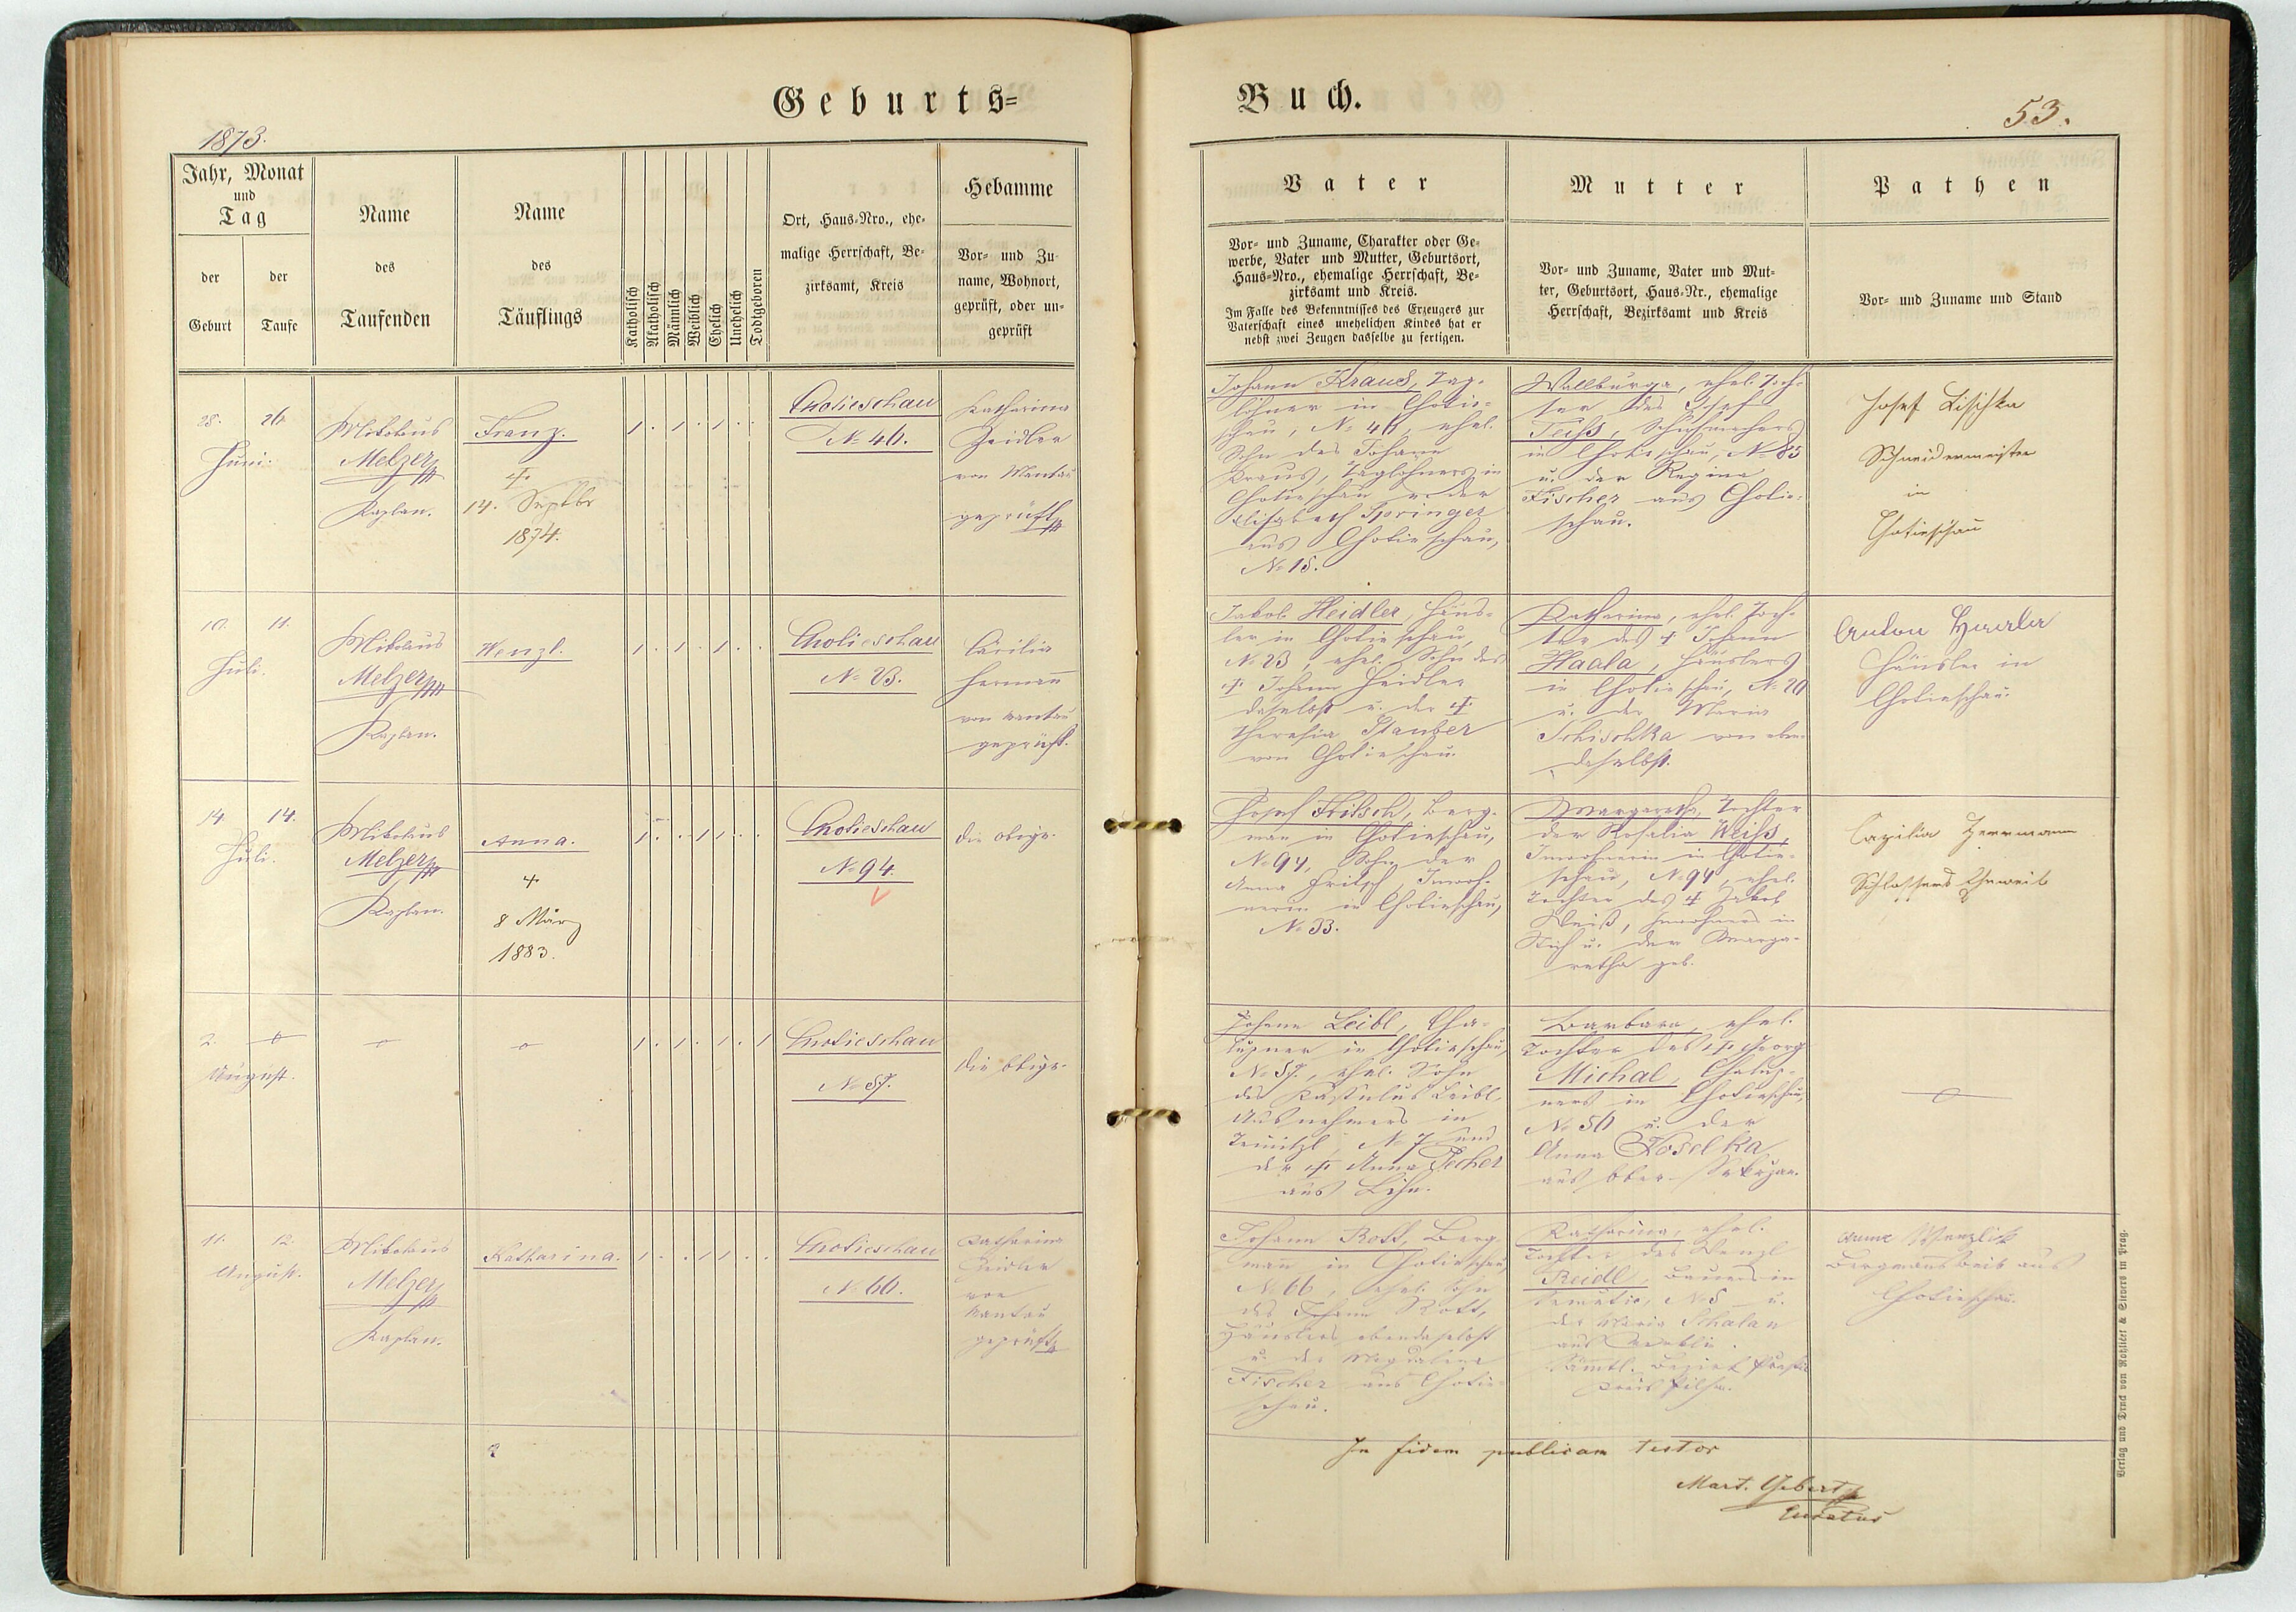 Geburts=
Buch.
1873.
53.
Jahr, Monat
und
Tag
der
Geburt
der
Taufe
Name
des
Taufenden
Name
des
Täuflings
Katholisch
Akatholisch
Männlich
Weiblich
Ehelich
Unehelich
Todtgeboren
Ort, Haus-Nro., ehe-
malige Herrschaft, Be-
zirksamt, Kreis
Hebamme
Vor- und Zu-
name, Wohnort,
geprüft, oder un-
geprüft
Vater
Vor- und Zuname, Charakter oder Ge-
werbe, Vater und Mutter, Geburtsort,
Haus-Nro., ehemalige Herrschaft, Be-
zirksamt und Kreis.
Im Falle des Bekenntnisses des Erzeugers zur
Vaterschaft eines unehelichen Kindes hat er
nebst zwei Zeugen dasselbe zu fertigen.
Mutter
Vor- und Zuname, Vater und Mut-
ter, Geburtsort, Haus-Nr., ehemalige
Herrschaft, Bezirksamt und Kreis
Pathen
Vor- und Zuname und Stand
26.
Juni.
Mikolaus
Melzer
Kaplan.
Franz.
†
14. Septbr
1874.
1 . 1 . 1 . .
Chotieschau
No 46.
Katharina
Zeidler
von Mantau
geprüft
Johann Kraus, Tag-
löhner in Chotie-
schau, No 46, ehel.
Sohn des Johann
Kraus, Taglöhners in
Chotieschau u. der
Elisabeth Springer
aus Chotieschau,
No 18.
Wallburga, ehel. Toch-
ter des Josef
Teiss, Schuhmachers
in Chotieschau, No 85
u. der Regina
Fischer aus Chotie-
schau.
Josef Lischka
Schneidermeister
in
Chotieschau
10.
11.
Juli.
Mikolaus
Melzer
Kaplan.
Wenzl.
1 . 1 . 1 . .
Chotieschau
No 23.
Cäcilia
Hermann
von Mantau
geprüft.
Jakob Heidler, Häus-
ler in Chotieschau,
No 23, ehel. Sohn des
† Johann Heidler
daselbst u. der †
Theresia Stauber
von Chotieschau.
Katharina, ehel. Toch-
ter des † Johann
Haala, Häuslers
in Chotieschau, No 20
u. der Maria
Schischka von eben-
daselbst.
Anton
Häusler in
Chotieschau.
14.
14.
Juli.
Mikolaus
Melzer
Kaplan.
Anna.
†
8 März
1883.
1 . . 1 1 . .
Chotieschau
No 94.
die obige.
Josef Fritsch, Berg-
man in Chotieschau,
No 94, Sohn der
Anna Fritsch, Inwoh-
nerin in Chotieschau,
No 33.
Margaretha, Tochter
der Rosalia Weiss,
Inwohnerin in Chotie-
schau, No 94, ehel.
Tochter des † Jakob
Weiß, Inwohners in
u. der Marga-
retha geb.
Cazilia Herrmann
Schlossers Eheweib
2.
August.
1 . 1 . 1 . 1
Chotieschau
No 57.
die obige.
Johann Leibl, Cha-
lupner in Chotieschau,
No 57., ehel. Sohn
des Kastulus Leibl,
Ausnehmers in
No 7 und
der † Anna Pecher
aus
Barbara, ehel.
Tochter des † Georg
Michal, Chalup-
ners in Chotieschau,
No 50 u. der
Anna Koselka
aus Ober-Sekeřzan.
11.
12.
August.
Mikolaus
Melzer
Kaplan.
Katharina.
1 . . 1 1 . .
Chotieschau
No 66.
Katharina
Zeidler
von
Mantau
geprüft
Johann Rott, Berg-
mann in Chotieschau,
No 66, ehel. Sohn
des Johann Rott,
Häuslers ebendaselbst
u. der Magdalena
Fischer aus Chotie-
schau.
Katharina, ehel.
Tochter des Wenzl
Reidl, Bauers in
No 5 u.
der Maria Schalan
aus
Sämtl. Bezirk
Kreis Pilsen.
Anna Wenzlik
Bergmannsweib aus
Chotieschau.
In fidem publicam testor
Mart. Gebert
Curatus
Verlag und Druck von Rohliček & Sievers in Prag.